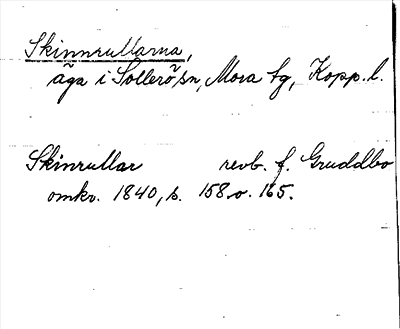 Skinnrullarna,
äga i Sollerö sn, Mora tg, Kopp. l.
Skinrullar revb. f. Gruddbo
omkr. 1840, s. 158 o. 165.